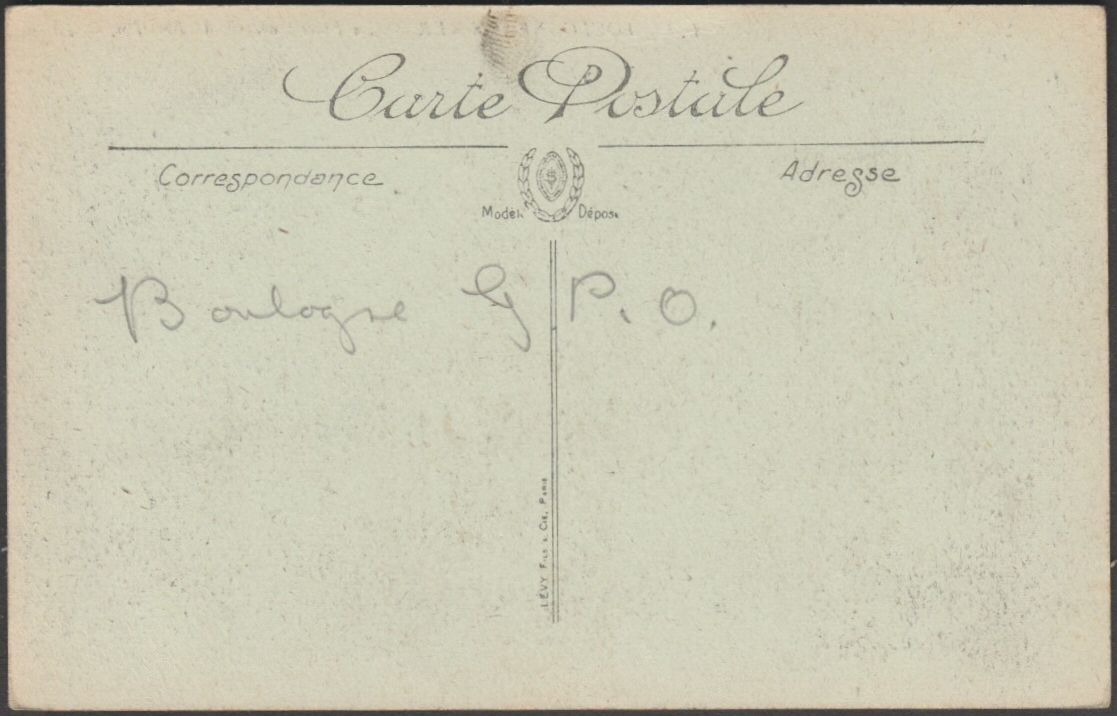 Carte Postale
Correspondance
Adresse
Modèle Déposé
Boulogne G P. O.
LÉVY FILS & CIE, PARIS